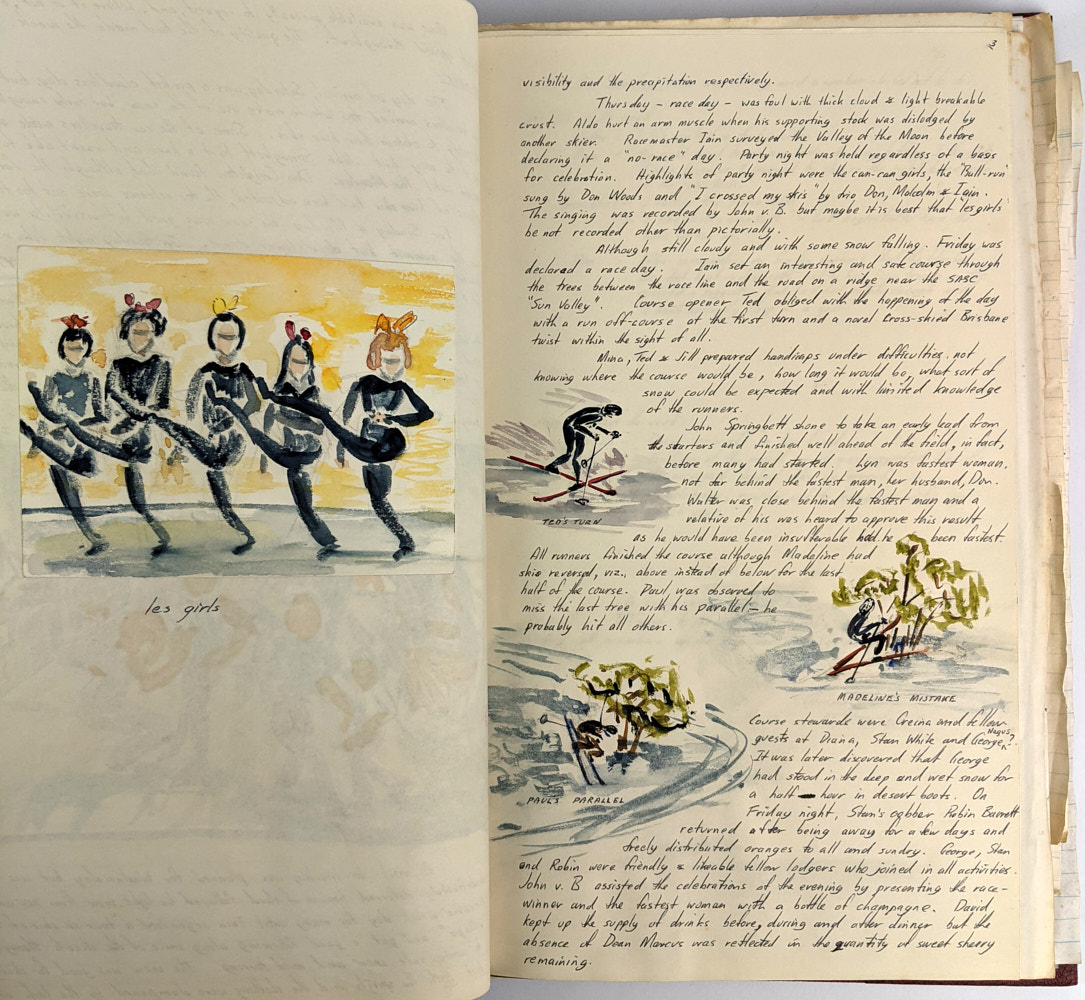 les girls
2
visibility and the precipitation respectively.
Thursday - race day - was foul with thick cloud & light breakable
crust. Aldo hurt an arm muscle when his supporting stock was dislodged by
another skier. Racemaster Iain surveyed the Valley of the Moon before
declaring it a "no-race" day. Party night was held regardless of a basis
for celebration. Highlights of party night were the can-can girls, the "Bull-run"
sung by Don Woods and "I crossed my skis" by trio Don, Malcolm & Iain.
The singing was recorded by John v. B. but maybe it is best that 'les girls'
be not recorded other than pictorially.
Although still cloudy and with some snow falling. Friday was
declared a race day. Iain set an interesting and safe course through
the trees between the race line and the road on a ridge near the SASC
"Sun Valley". Course opener Ted obliged with the happening of the day
with a run off-course at the first turn and a novel Cross-skied Brisbane
twist within the sight of all.
Mina, Ted & Jill prepared handicaps under difficulties, not
knowing where the course would be, how long it would be, what sort of
snow could be expected and with limited knowledge
of the runners.
John Springbett shone to take an early lead from
the starters and finished well ahead of the field, in fact,
before many had started. Lyn was fastest woman,
not far behind the fastest man, her husband, Don.
Walter was close behind the fastest man and a
relative of his was heard to approve this result
as he would have been insufferable had he been fastest.
TED'S TURN
All runners finished the course although Madeline had
skis reversed, viz., above instead of below for the last
half of the course. Paul, was observed to
miss the last tree with his parallel - he
probably hit all others.
MADELINE'S MISTAKE
PAUL'S PARALLEL
Course stewards were Creina and fellow
guests at Diana, Stan White and George Negus?
It was later discovered that George
had stood in the deep and wet snow for
a half hour in desert boots. On
Friday night, Stan's cobber Robin Barrett
returned after being away for a few days and
freely distributed oranges to all and sundry. George, Stan
and Robin were friendly & likeable fellow lodgers who joined in all activities.
John v. B assisted the celebrations of the evening by presenting the race-
winner and the fastest woman with a bottle of champagne. David
kept up the supply of drinks before, during and after dinner but the
absence of Dean Marcus was reflected in the quantity of sweet sherry
remaining.